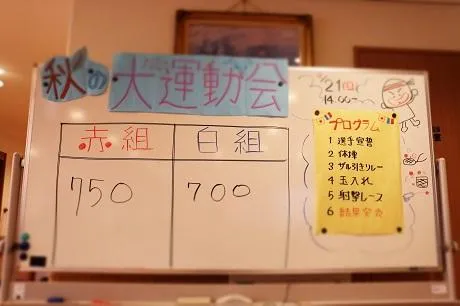 秋の大運動会
21(日)
14:00〜
赤組 白組
750 700
プログラム
1 選手宣誓
2 体操
3 ザル引きリレー
4 玉入れ
5 射撃レース
6 結果発表